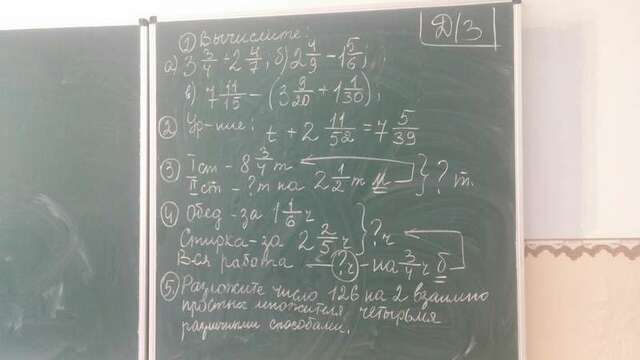 Д/З
① Вычислите:
а) 3 3/4 + 2 4/7; б) 2 4/9 - 1 5/6;
в) 7 11/15 - (3 9/20 + 1 1/30);
② Ур-ние: t + 2 11/52 = 7 5/39
③ I ст - 8 3/4 т
II ст - ? т на 2 1/2 т м } ? т.
④ Обед - за 1 1/6 ч
Стирка - за 2 2/5 ч } ? ч
Вся работа - ? ч - на 3/4 ч б
⑤ Разложите число 126 на 2 взаимно
простых множителя четырьмя
различными способами.